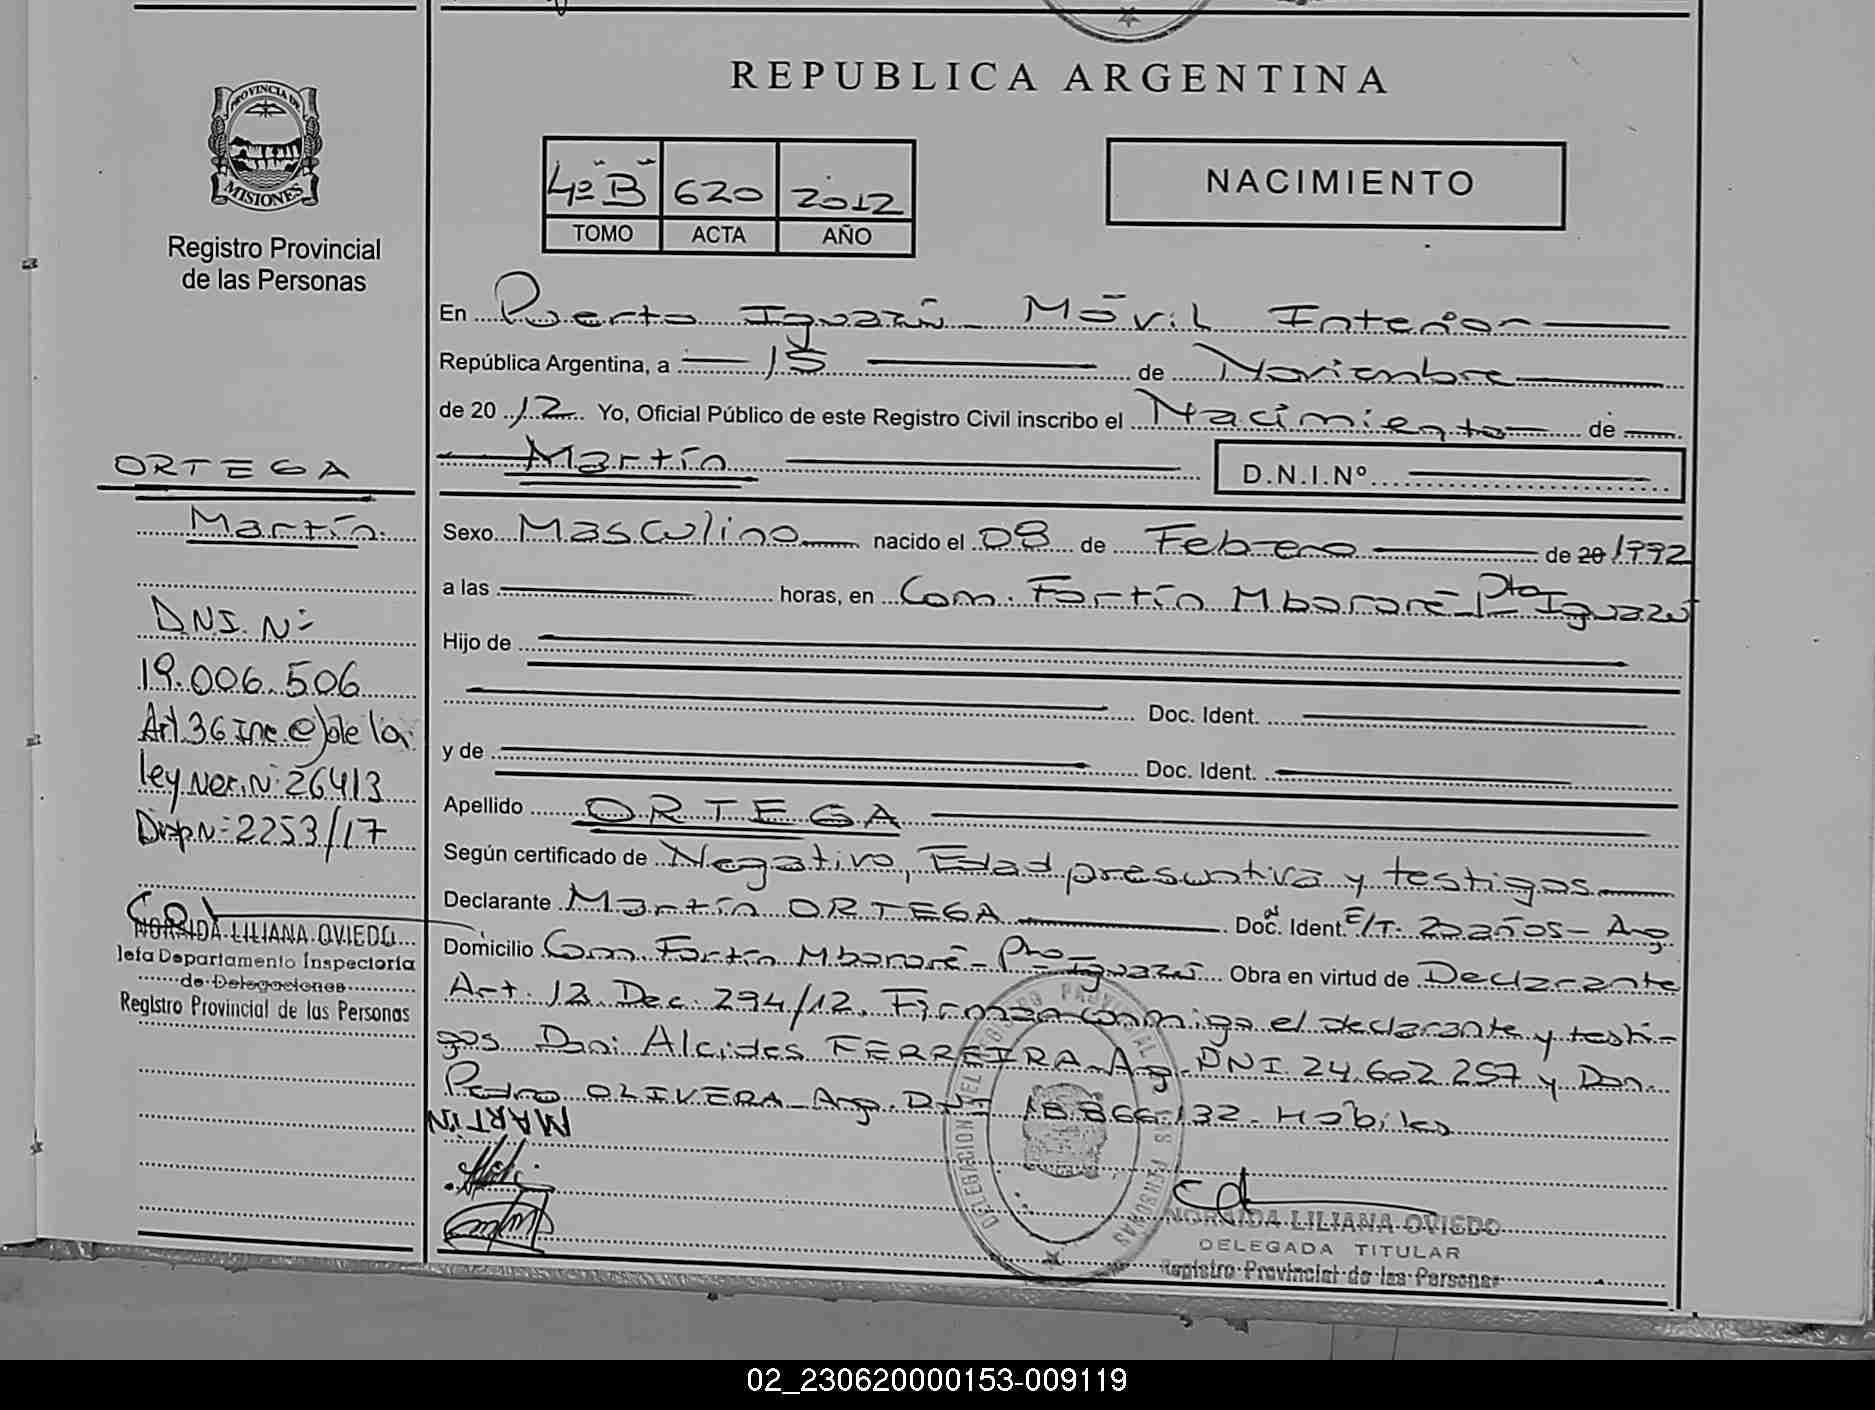 REPUBLICA ARGENTINA
PROVINCIA DE
MISIONES
Registro Provincial
de las Personas
4º "B" 620 2012
TOMO ACTA AÑO
NACIMIENTO
En Puerto Iguazú - Móvil Interior
República Argentina, a 15 de Noviembre
de 2012 Yo, Oficial Público de este Registro Civil inscribo el Nacimiento de
Martín D.N.I.Nº
Sexo Masculino nacido el 08 de Febrero de 20 1992
a las horas, en Com. Fortín Mbororé - Pto Iguazú
Hijo de
Doc. Ident.
y de Doc. Ident.
Apellido ORTEGA
Según certificado de Negativo, Edad presuntiva y testigos
Declarante Martín ORTEGA Doc. Ident. E/T. 20 años - Arg
Domicilio Com. Fortín Mbororé - Pto Iguazú Obra en virtud de Declarante
Art. 12 Dec. 294/12. Firman conmigo el declarante y testi-
gos Don: Alcides FERREIRA - Arg. DNI 24.602.257 y Don.
Pedro OLIVERA - Arg. DNI 18.866.132 - Hábiles
MARTIN
ORTEGA
Martín.
DNI. Nº
19.006.506
Art. 36 Inc. e) de la
ley Nac. Nº 26413
Disp. Nº 2253/17
NORAIDA LILIANA OVIEDO
Jefa Departamento Inspectoria
de Delegaciones
Registro Provincial de las Personas
DELEGACION DEL REGISTRO PROVINCIAL DE LAS PERSONAS
NORAIDA LILIANA OVIEDO
DELEGADA TITULAR
Registro Provincial de las Personas
02_230620000153-009119